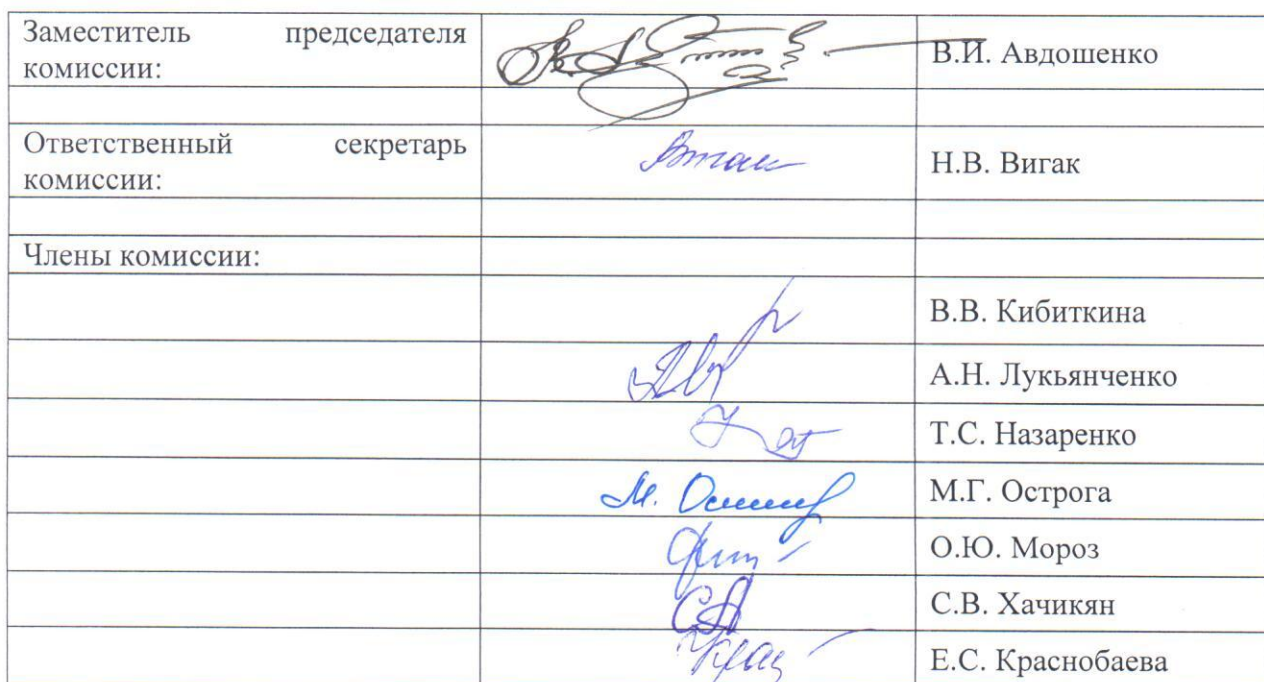 Заместитель председателя
комиссии:
В.И. Авдошенко
Ответственный секретарь
комиссии:
Н.В. Вигак
Члены комиссии:
В.В. Кибиткина
А.Н. Лукьянченко
Т.С. Назаренко
М.Г. Острога
О.Ю. Мороз
С.В. Хачикян
Е.С. Краснобаева